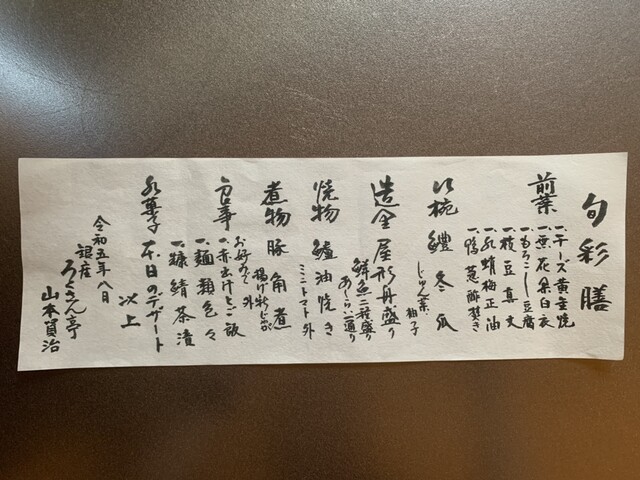 旬彩膳
前菜
一、チーズ黄金焼
一、無花果白衣
一、もろこし豆腐
一、枝豆真丈
一、水蛸梅正油
一、鴨葱酢焚き
吸椀 鱧 冬瓜
じゅん菜 柚子
造里 屋形舟盛り
鮮魚三種盛り
あしらい一通り
焼物 鱸油焼き
ミニトマト外
煮物 豚角煮
揚げ
外
食事 お好みで
一、赤出汁とご飯
一、麺類色々
一、糠鯖茶漬
水菓子 本日のデザート
以上
令和五年八月
銀座 ろくさん亭
山本